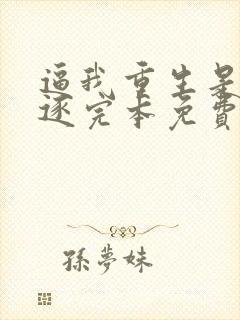 逼我重生是
逐完本免费
孫夢妹